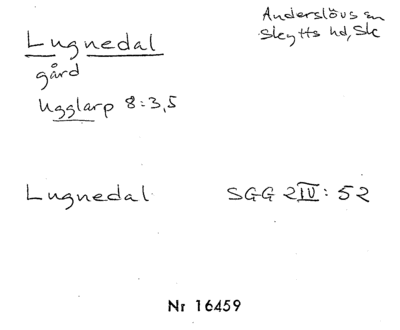 Anderslövs sn
Skytts hd, Sk
Lugnedal
gård
Ugglarp 8:3,5
Lugnedal SGG 2IV: 52
Nr 16459